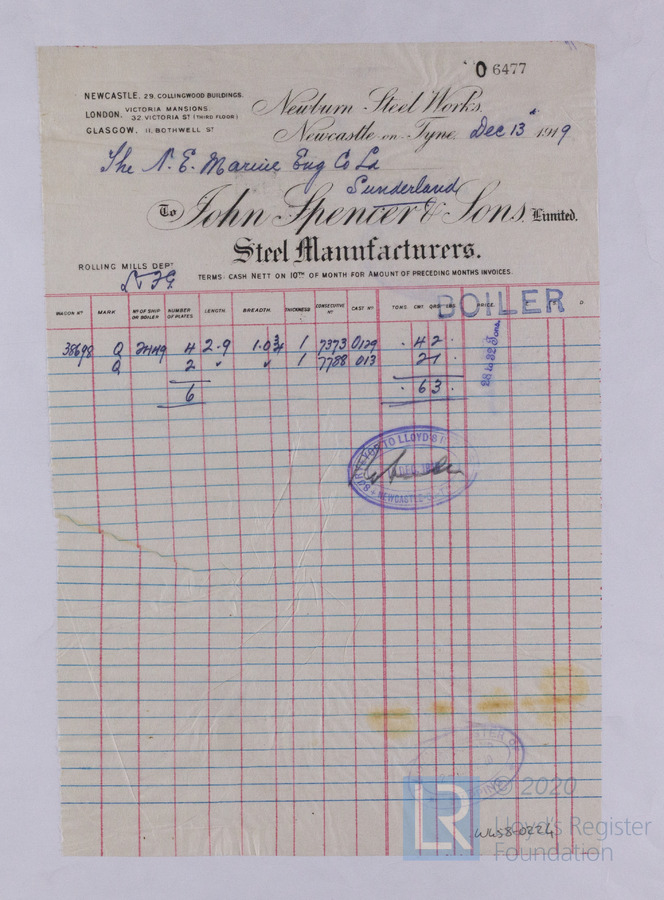 O 6477
NEWCASTLE, 29, COLLINGWOOD BUILDINGS.
LONDON, VICTORIA MANSIONS. 32, VICTORIA ST (THIRD FLOOR)
GLASGOW, 11, BOTHWELL ST
Newburn Steel Works,
Newcastle on Tyne, Dec 13th 1919
The N. E. Marine Eng Co Ld
Sunderland
To John Spencer & Sons, Limited.
Steel Manufacturers.
ROLLING MILLS DEPT
TERMS: CASH NETT ON 10TH OF MONTH FOR AMOUNT OF PRECEDING MONTHS INVOICES.
BOILER
WAGON No MARK No OF SHIP OR BOILER NUMBER OF PLATES. LENGTH. BREADTH. THICKNESS CONSECUTIVE No CAST No TONS. CWT. QRS. LBS. PRICE. £ S. D
38698 Q 2449 4 2.9 1.0¾ 1 7373 0129 . 4 2 .
Q 2 " " 1 7788 013 2 1 .
6 . 6 3 .
28 to 32 Tons.
SURVEYOR TO LLOYD'S
DEC 19
NEWCASTLE
© 2020
LR
Lloyd's Register
Foundation
WWS8-0224